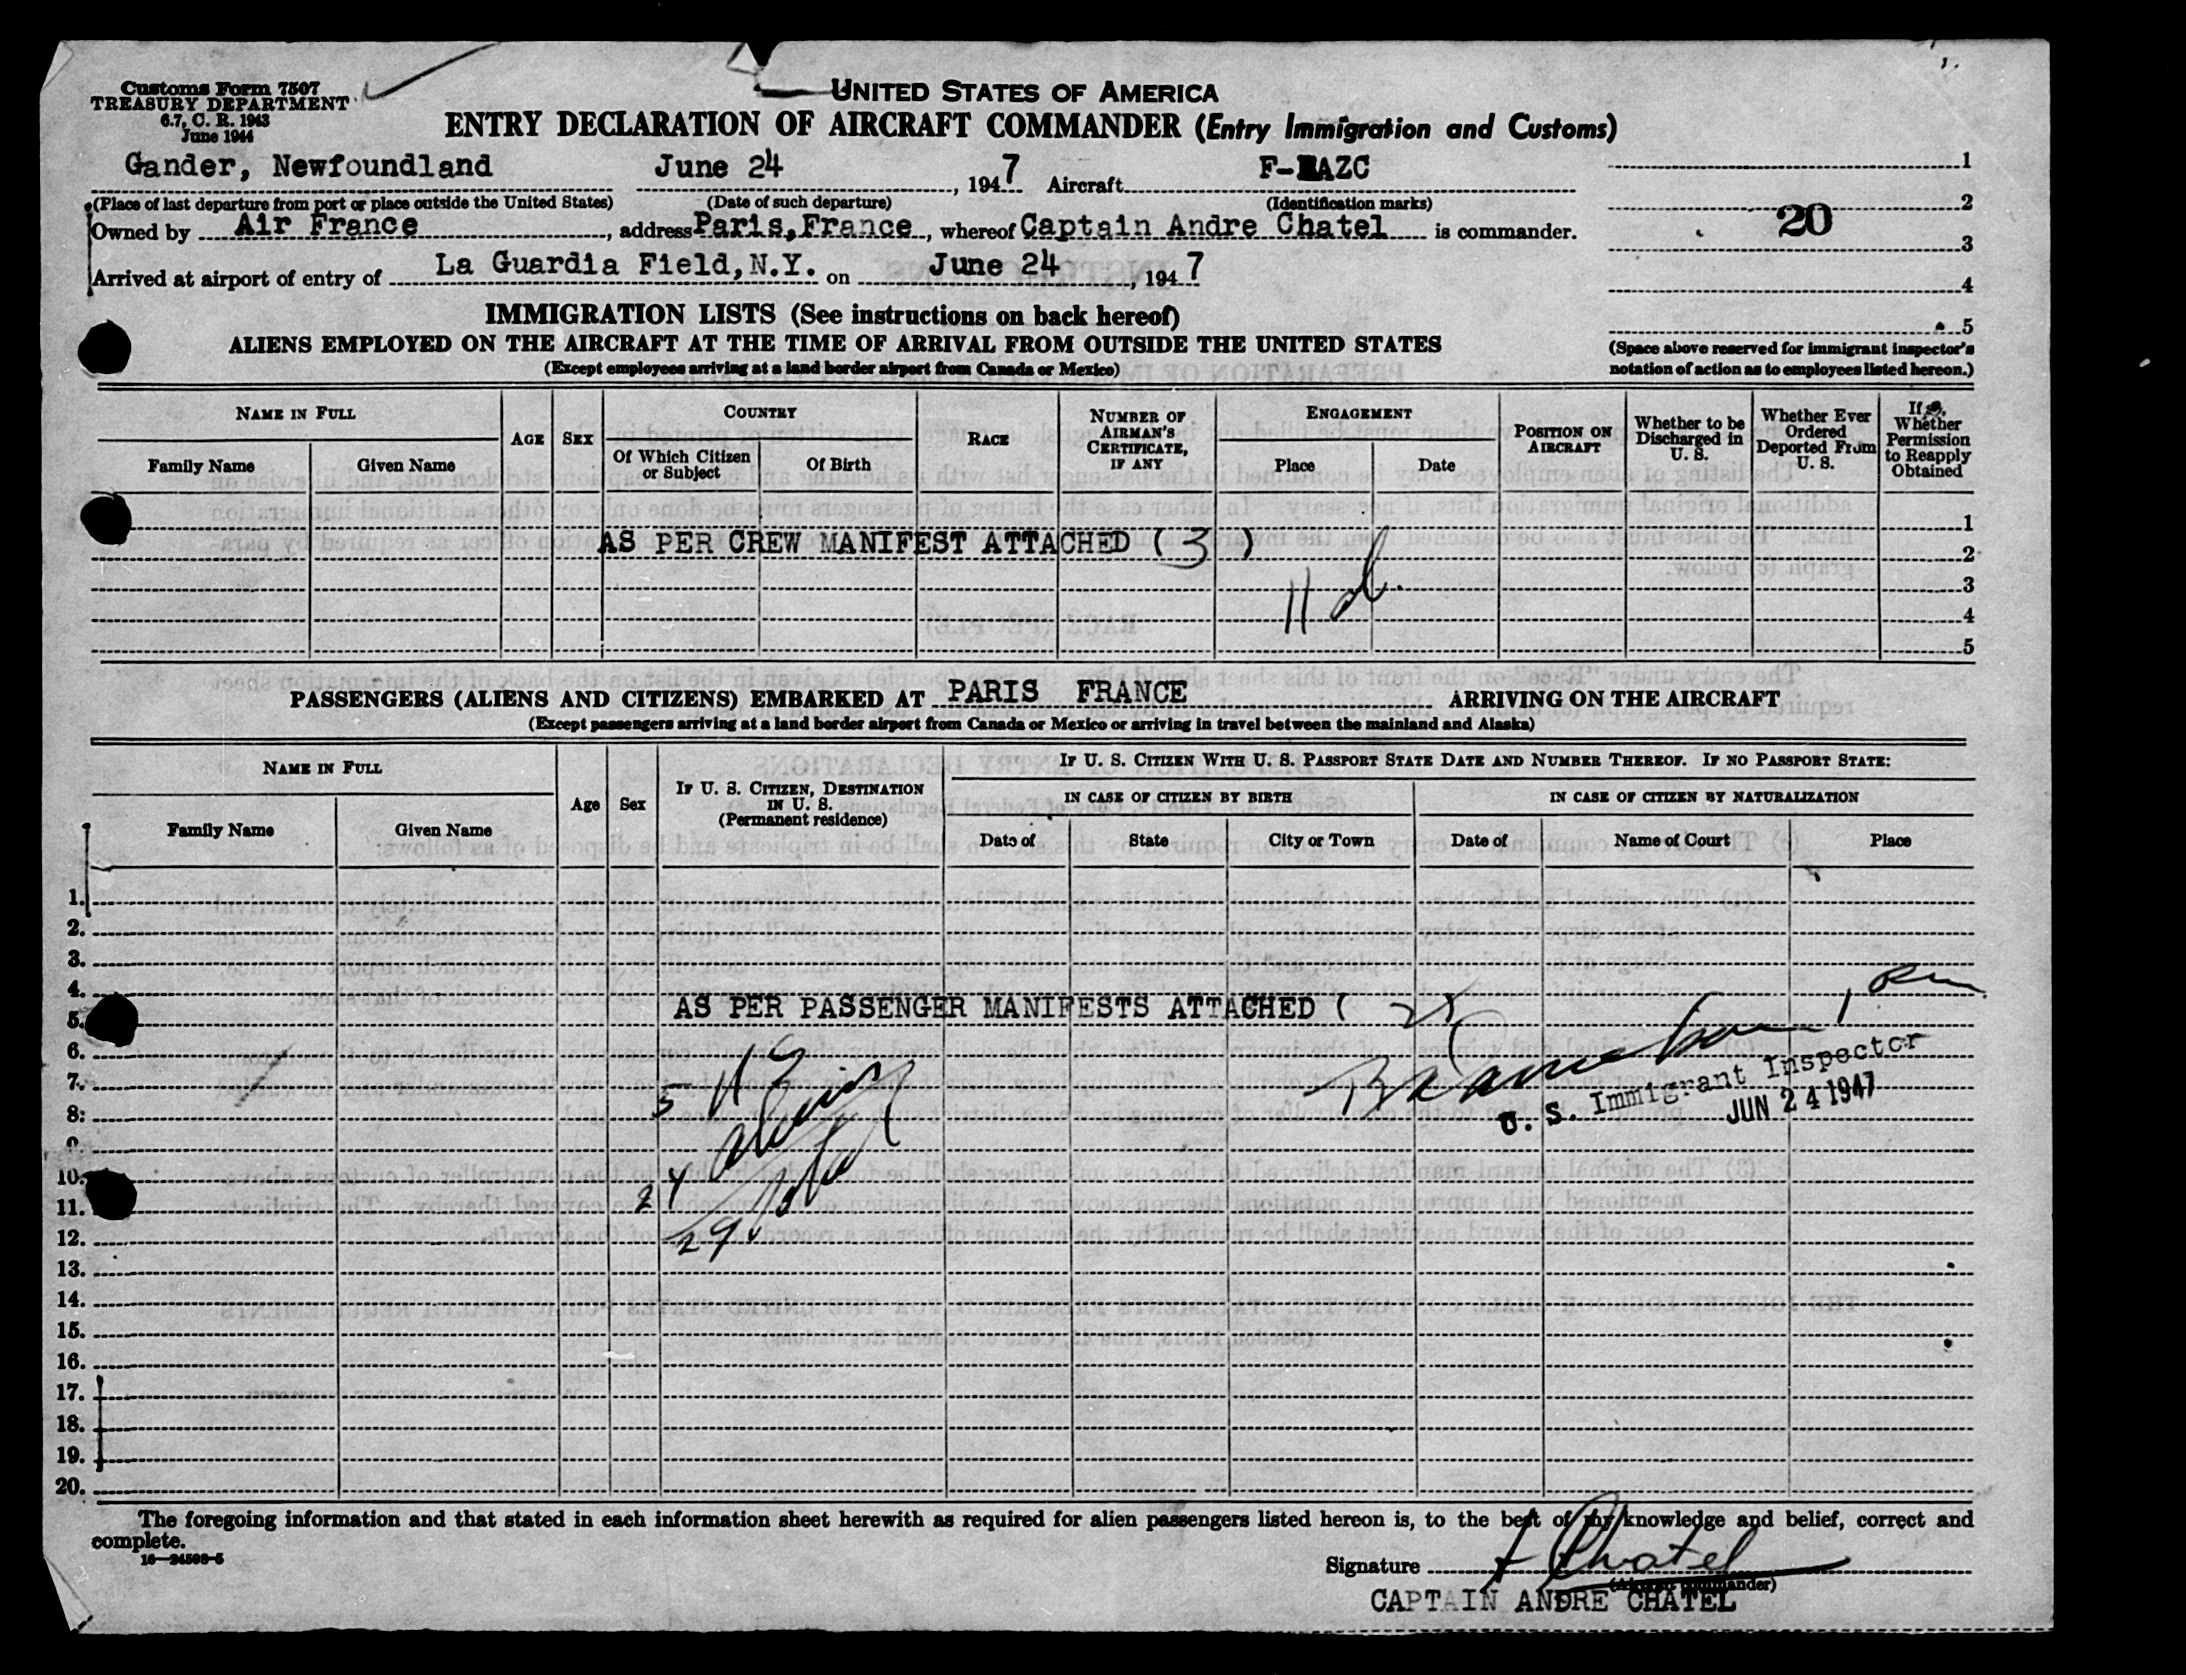 Customs Form 7507
TREASURY DEPARTMENT
6.7, C. R. 1943
June 1944
UNITED STATES OF AMERICA
ENTRY DECLARATION OF AIRCRAFT COMMANDER (Entry Immigration and Customs)
Gander, Newfoundland June 24, 1947 Aircraft F- AZC
(Place of last departure from port or place outside the United States) (Date of such departure) (Identification marks)
Owned by Air France, address Paris, France, whereof Captain Andre Chatel is commander.
Arrived at airport of entry of La Guardia Field, N.Y. on June 24, 1947
1
2
20
3
4
5
(Space above reserved for immigrant inspector's notation of action as to employees listed hereon.)
IMMIGRATION LISTS (See instructions on back hereof)
ALIENS EMPLOYED ON THE AIRCRAFT AT THE TIME OF ARRIVAL FROM OUTSIDE THE UNITED STATES
(Except employees arriving at a land border airport from Canada or Mexico)
NAME IN FULL
Family Name
Given Name
AGE
SEX
COUNTRY
Of Which Citizen or Subject
Of Birth
RACE
NUMBER OF AIRMAN'S CERTIFICATE, IF ANY
ENGAGEMENT
Place
Date
POSITION ON AIRCRAFT
Whether to be Discharged in U. S.
Whether Ever Ordered Deported From U. S.
If so, Whether Permission to Reapply Obtained
1
AS PER CREW MANIFEST ATTACHED ( 3 )
2
3
11
4
5
PASSENGERS (ALIENS AND CITIZENS) EMBARKED AT PARIS FRANCE ARRIVING ON THE AIRCRAFT
(Except passengers arriving at a land border airport from Canada or Mexico or arriving in travel between the mainland and Alaska)
NAME IN FULL
Family Name
Given Name
Age
Sex
IF U. S. CITIZEN, DESTINATION IN U. S.
(Permanent residence)
IF U. S. CITIZEN WITH U. S. PASSPORT STATE DATE AND NUMBER THEREOF. IF NO PASSPORT STATE:
IN CASE OF CITIZEN BY BIRTH
Date of
State
City or Town
IN CASE OF CITIZEN BY NATURALIZATION
Date of
Name of Court
Place
1.
2.
3.
4.
AS PER PASSENGER MANIFESTS ATTACHED (
5.
6.
7.
5
U. S. Immigrant Inspector
JUN 24 1947
8.
9.
10.
24
11.
29
12.
13.
14.
15.
16.
17.
18.
19.
20.
The foregoing information and that stated in each information sheet herewith as required for alien passengers listed hereon is, to the best of my knowledge and belief, correct and
complete.
16—24508-5
Signature A Chatel
(Aircraft commander)
CAPTAIN ANDRE CHATEL